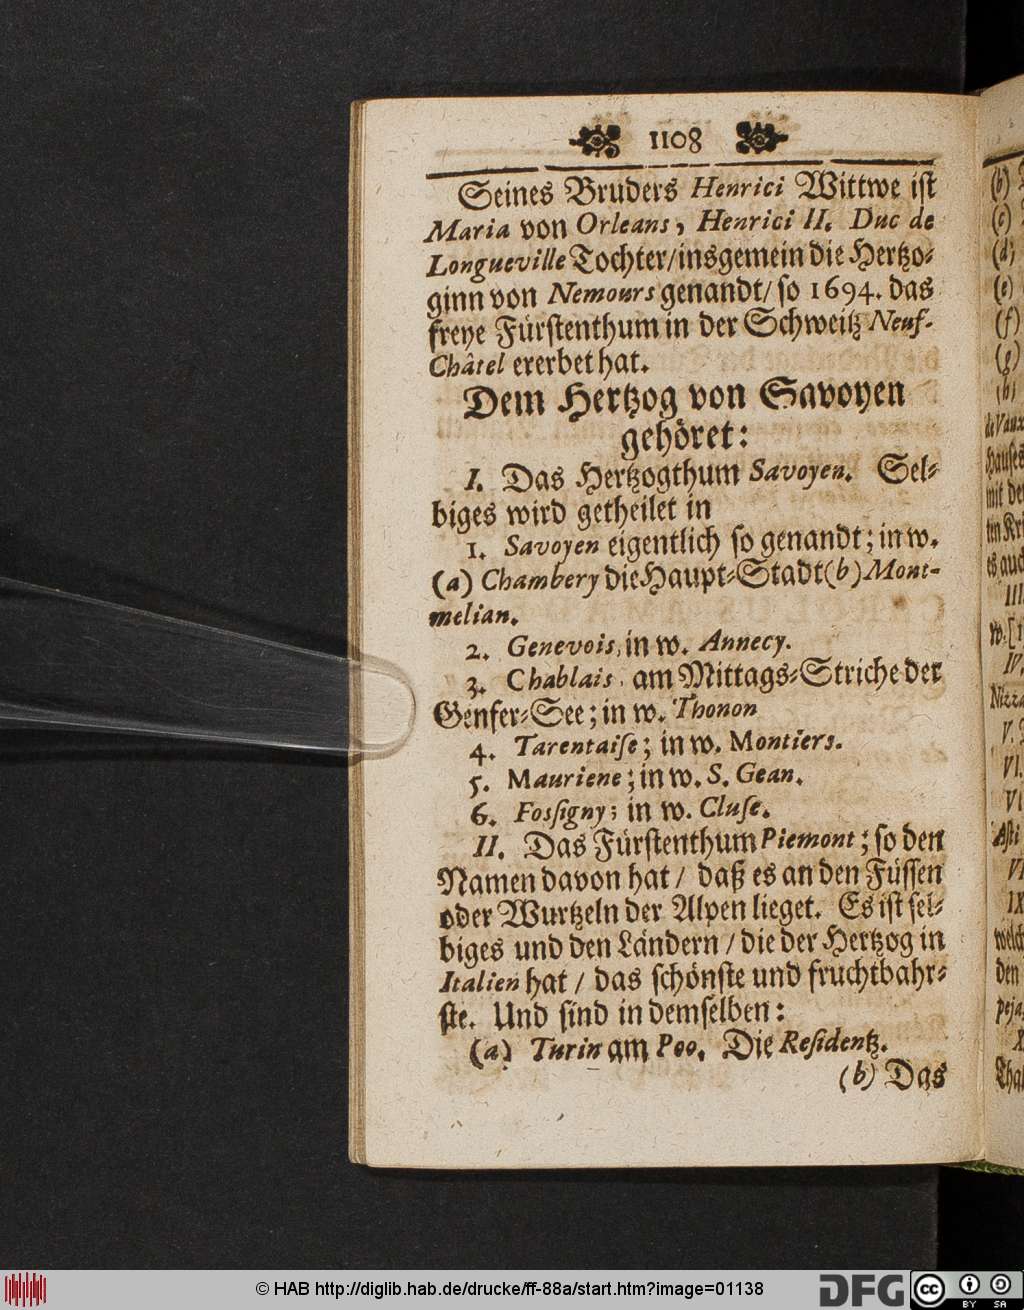 1108
Seines Bruders Henrici Wittwe ist
Maria von Orleans, Henrici II. Duc de
Longueville Tochter/insgemein die Hertzo-
ginn von Nemours genandt/ so 1694. das
freye Fürstenthum in der Schweitz Neuf-
Châtel ererbet hat.
Dem Hertzog von Savoyen
gehöret:
I. Das Hertzogthum Savoyen. Sel-
biges wird getheilet in
1. Savoyen eigentlich so genandt; in w.
(a) Chambery die Haupt-Stadt (b) Mont-
melian.
2. Genevois, in w. Annecy.
3. Chablais, am Mittags-Striche der
Genfer-See; in w. Thonon
4. Tarentaise; in w. Montiers.
5. Mauriene; in w. S. Gean.
6. Fossigny; in w. Cluse.
II. Das Fürstenthum Piemont; so den
Namen davon hat / daß es an den Füssen
oder Wurtzeln der Alpen lieget. Es ist sel-
biges und den Ländern / die der Hertzog in
Italien hat / das schönste und fruchtbahr-
ste. Und sind in demselben:
(a) Turin am Poo. Die Residentz.
(b) Das
(b)
(c)
(d)
(e)
(f)
(g)
(h)
de Vaux
Hauses
mit de
es auc
III
IV.
Nizza
V.
VI.
Asti
IX
welch
den
peja
X
© HAB http://diglib.hab.de/drucke/ff-88a/start.htm?image=01138
DFG
cc
BY SA